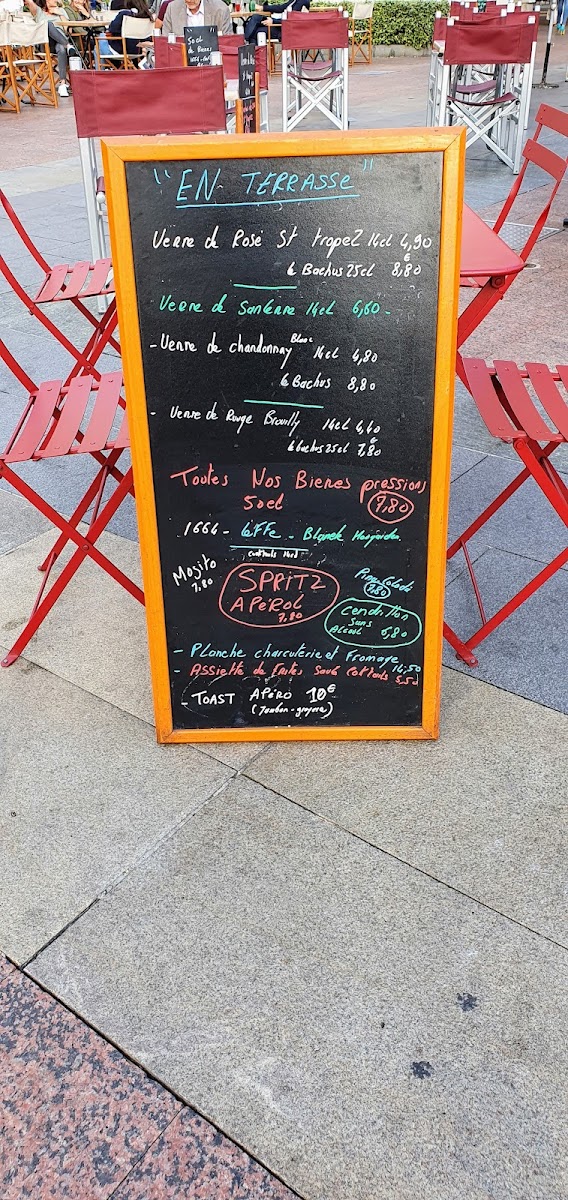 "EN TERRASSE"
Verre de Rosé St tropez 14cl 4,90
le Bachus 25cl 8,80 €
Verre de Santenne 14cl 6,60 -
- Verre de chardonnay Blanc 14cl 4,80
le Bachus 8,80
- Verre de Rouge Brouilly 14cl 4,40
le bachus 25cl 7,80 €
Toutes Nos Bieres pressions
50cl 7,80
1664 - Leffe - Blanch Hoegarden
Mojito
7,80
SPRITZ
APeROL
7,80
Pina Colada
7,80
Cendrillon
Sans
Alcool 5,80
- Planche charcuterie et Fromage 14,50
- Assiette de Frites 5,50
- TOAST APéRO 10€
(Jambon-gruyere)